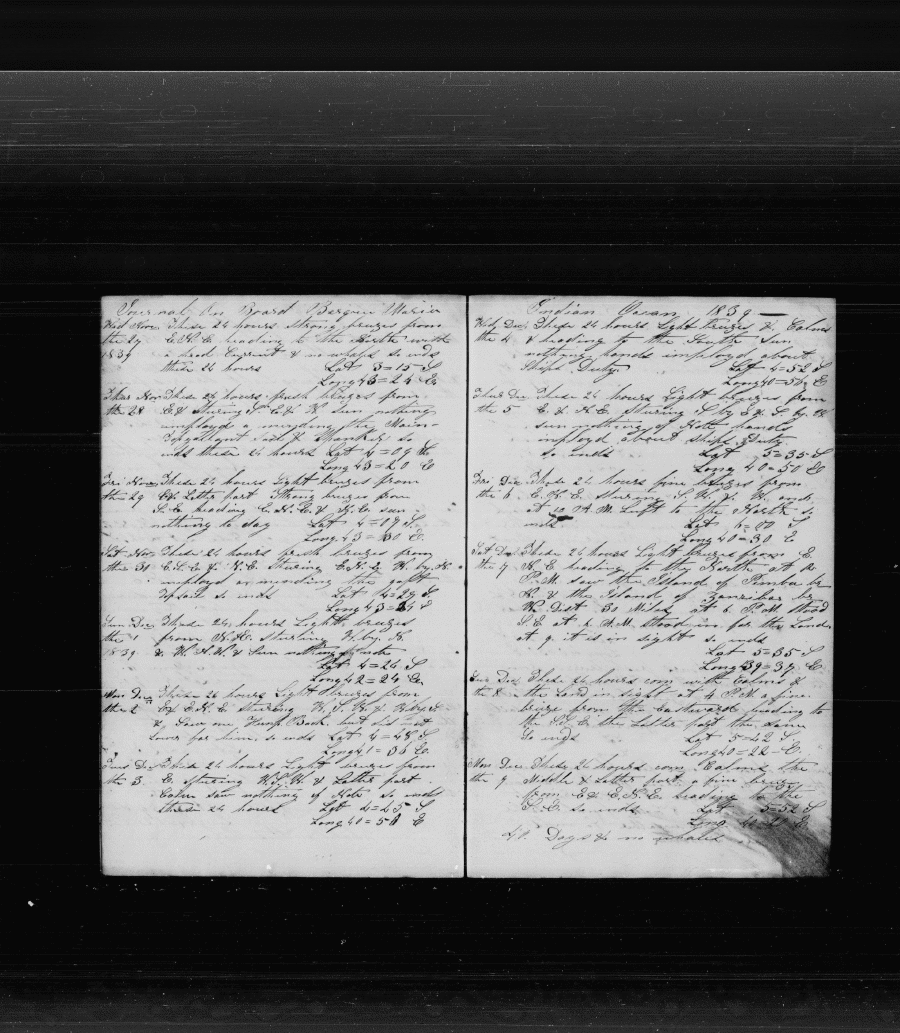 Journal On Board Barque Maria
Wed Nov These 24 hours Strong breezes from
the 27 E.N.E heading to the North with
1839 a head Current & no whales so ends
these 24 hours Lat 3=15 S
Long 43=24 E
Thurs Nov These 24 hours fresh breezes from
the 28 E & Stering S E & W Sun nothing
imployd a mending the Main-
Topgallant Sail & Spanker so
ends these 24 hours Lat 4=09 S
Long 43=20 E
Fri Nov These 24 hours Light breezes from
the 29 E & Latter part Strong breezes from
S.E heading E.N.E & N.E sun-
nothing to day Lat 4=19 S.
Long 43=30 E.
Sat Nov These 24 hours fresh breezes from
the 30 E.S.E & N.E Stering E.N.E W. by N
imployd a mending the
Topsail so ends Lat 4=29 S
Long 43=24 E
Sun Dec These 24 hours Light breezes
the 1 from N.E. sterling W. by N.
1839 & W.N.W. & Sun nothing of note
Lat 4=24 S
Long 42=24 E.
Mon Dec These 24 hours Light Breezes from
the 2 E & E.N.E stering W.S.W & W by S
& Saw one Hump Back but did not
Lower for him so ends Lat 4=48 S
Long 41=36 E.
Tues Dec These 24 hours Light breezes from
the 3. E. stering W.S.W & Latter part
Calm saw nothing of Note so ends
these 24 hours Lat 4=45 S
Long 40=51 E
Indian Ocean 1839
Wed Dec These 24 hours Light breezes & Calms
the 4 & heading to the South Sun
nothing hands imployd about
Ships Duty Lat 4=52 S
Long 40=52 E
Thurs Dec These 24 hours Light breezes from
the 5 E & N.E. stering S by E & S. by W
sun nothing of Note hands
imployd about ships Duty
so ends Lat 5=35 S
Long 40=50 E
Fri Dec These 24 hours fine breezes from
the 6 E.N.E. stering S.W. & W. and
at 10 A.M. Luft to the North so
ends Lat 6=00 S
Long 40=30 E
Sat Dec These 24 hours Light breezes from E
the 7 N.E heading to the North at
P.M. saw the Island of Pemba be
N. & the Island of Zanzibar be
W. Dist 30 Miles at 6 P.M. stood
S E at 6 A.M. Stood in for the Land
at 9 it is in sight so ends
Lat 5=35 S
Long 39=37 E.
Sun Dec These 24 hours com with Calms &
the 8 the Land in sight at 4 P.M a fine
breeze from the Eastward heading to
the S.E the Latter part the same
So ends Lat 5=42 S
Long 40=22 E.
Mon Dec These 24 hours com Calms the
the 9 Middle & Latter part a fine breeze
from E & E.N.E. heading to the
S.E. so ends Lat 5=52 S
Long E.
49 Days & no whales